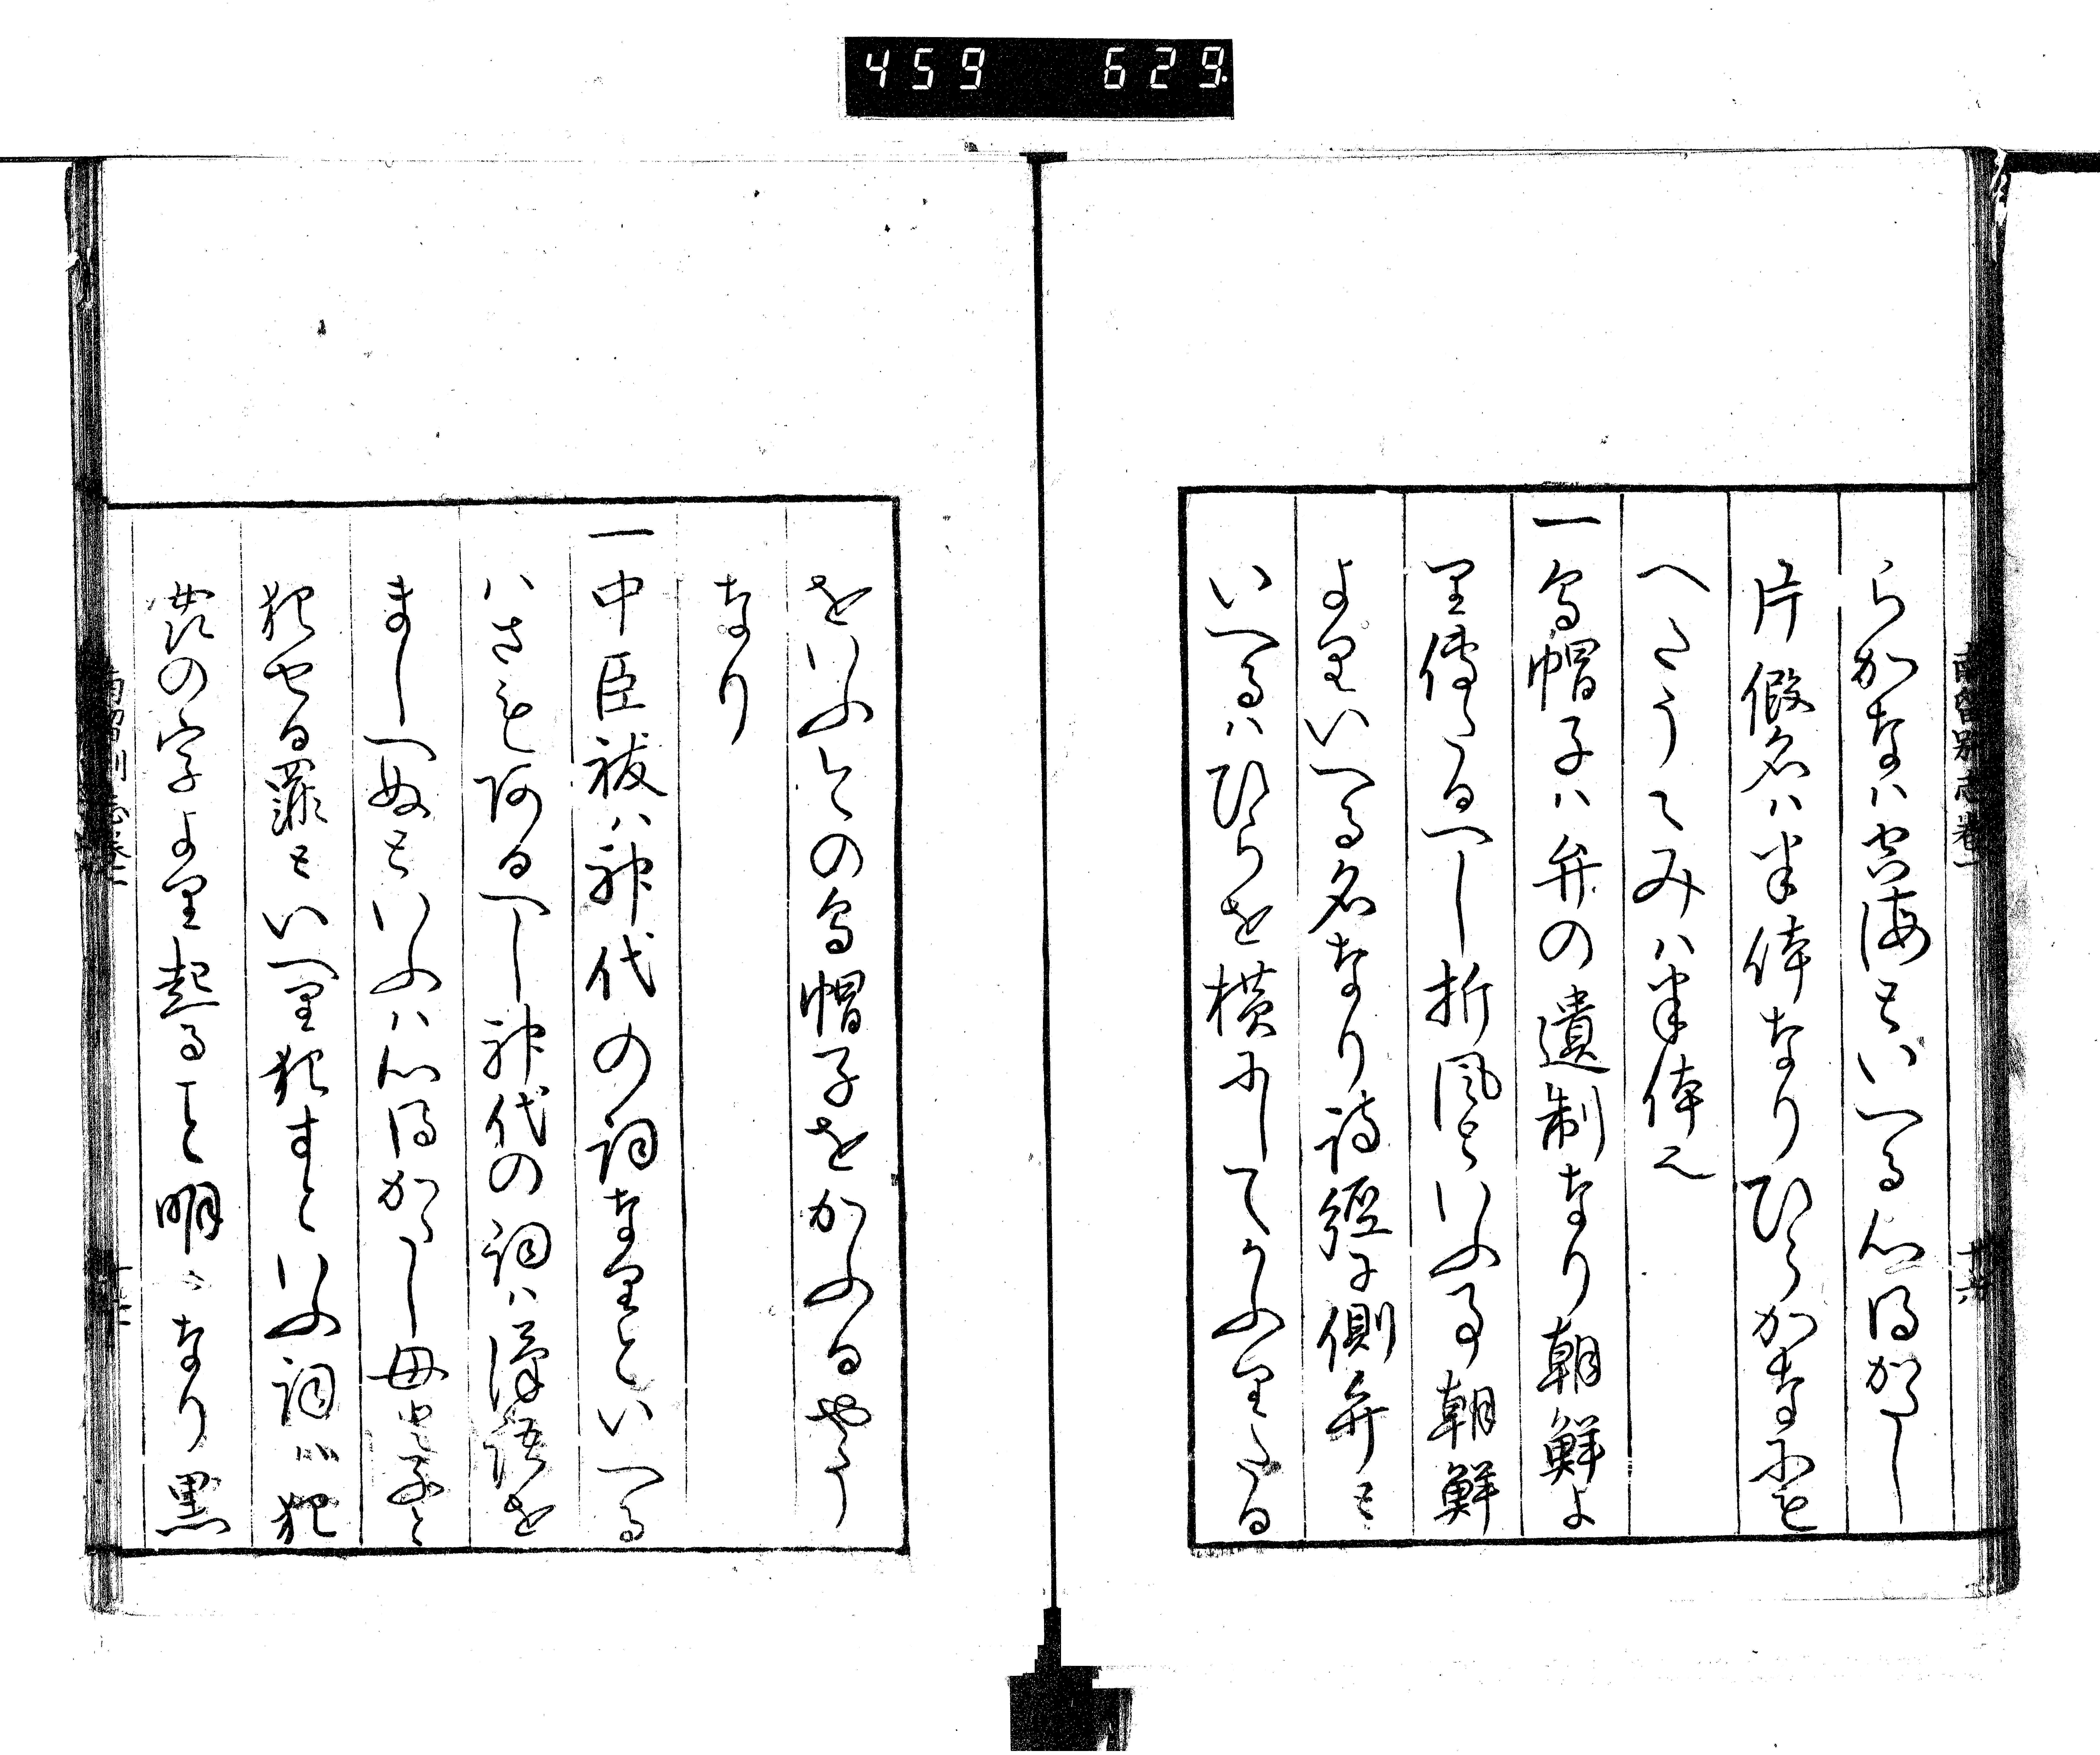 459 629
南留別志卷一
らかなハ空海といへる心得かたし
片假名ハ半体なりひらかなにも
へこうてみハ半体也
一烏帽子ハ弁の遺制なり朝鮮よ
り傳たるへし折風といふ事朝鮮
よりいへる名なり詩經に側弁と
いへるハひらを横にしてかふりたる
をいふ今の烏帽子をかふるやう
なり
一中臣祓ハ神代の詞なりといへる
ハさも阿るへし神代の詞ハ漢語を
ましへぬといふハ心得かたし母と子と
犯せる罪といへり犯すといふ詞ハ犯
の字より起ること明らなり黒